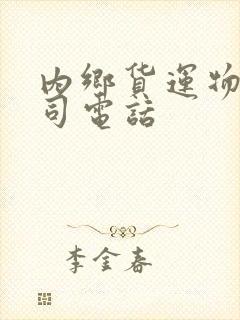 内鄉貨運物
司電話
李金春